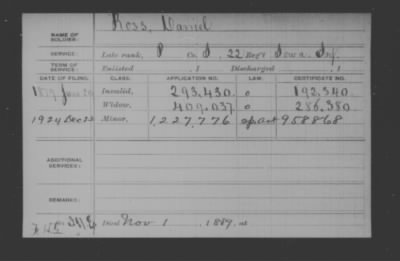 NAME OF SOLDIER: Ross, Daniel
SERVICE: Late rank, P Co. I, 22 Reg't Iowa Inf.
TERM OF SERVICE: Enlisted , 1 Discharged , 1
DATE OF FILING. CLASS. APPLICATION NO. LAW. CERTIFICATE NO.
1879 June 20 Invalid, 293,430 0 192,340
Widow, 409,037 0 286,380
1924 Dec 22 Minor, 1,227,776 958868
ADDITIONAL SERVICES:
REMARKS:
Died Nov 1 1889, at